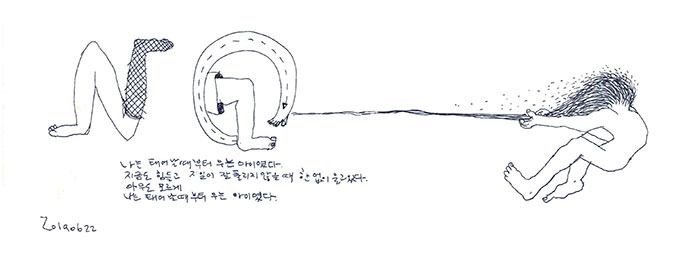 나는 태어날때부터 우는 아이였다.
지금도 힘들고 일이 잘 풀리지 않을 때 한 없이 울고있다.
아무도 모르게
나는 태어날때부터 우는 아이였다.
20190622